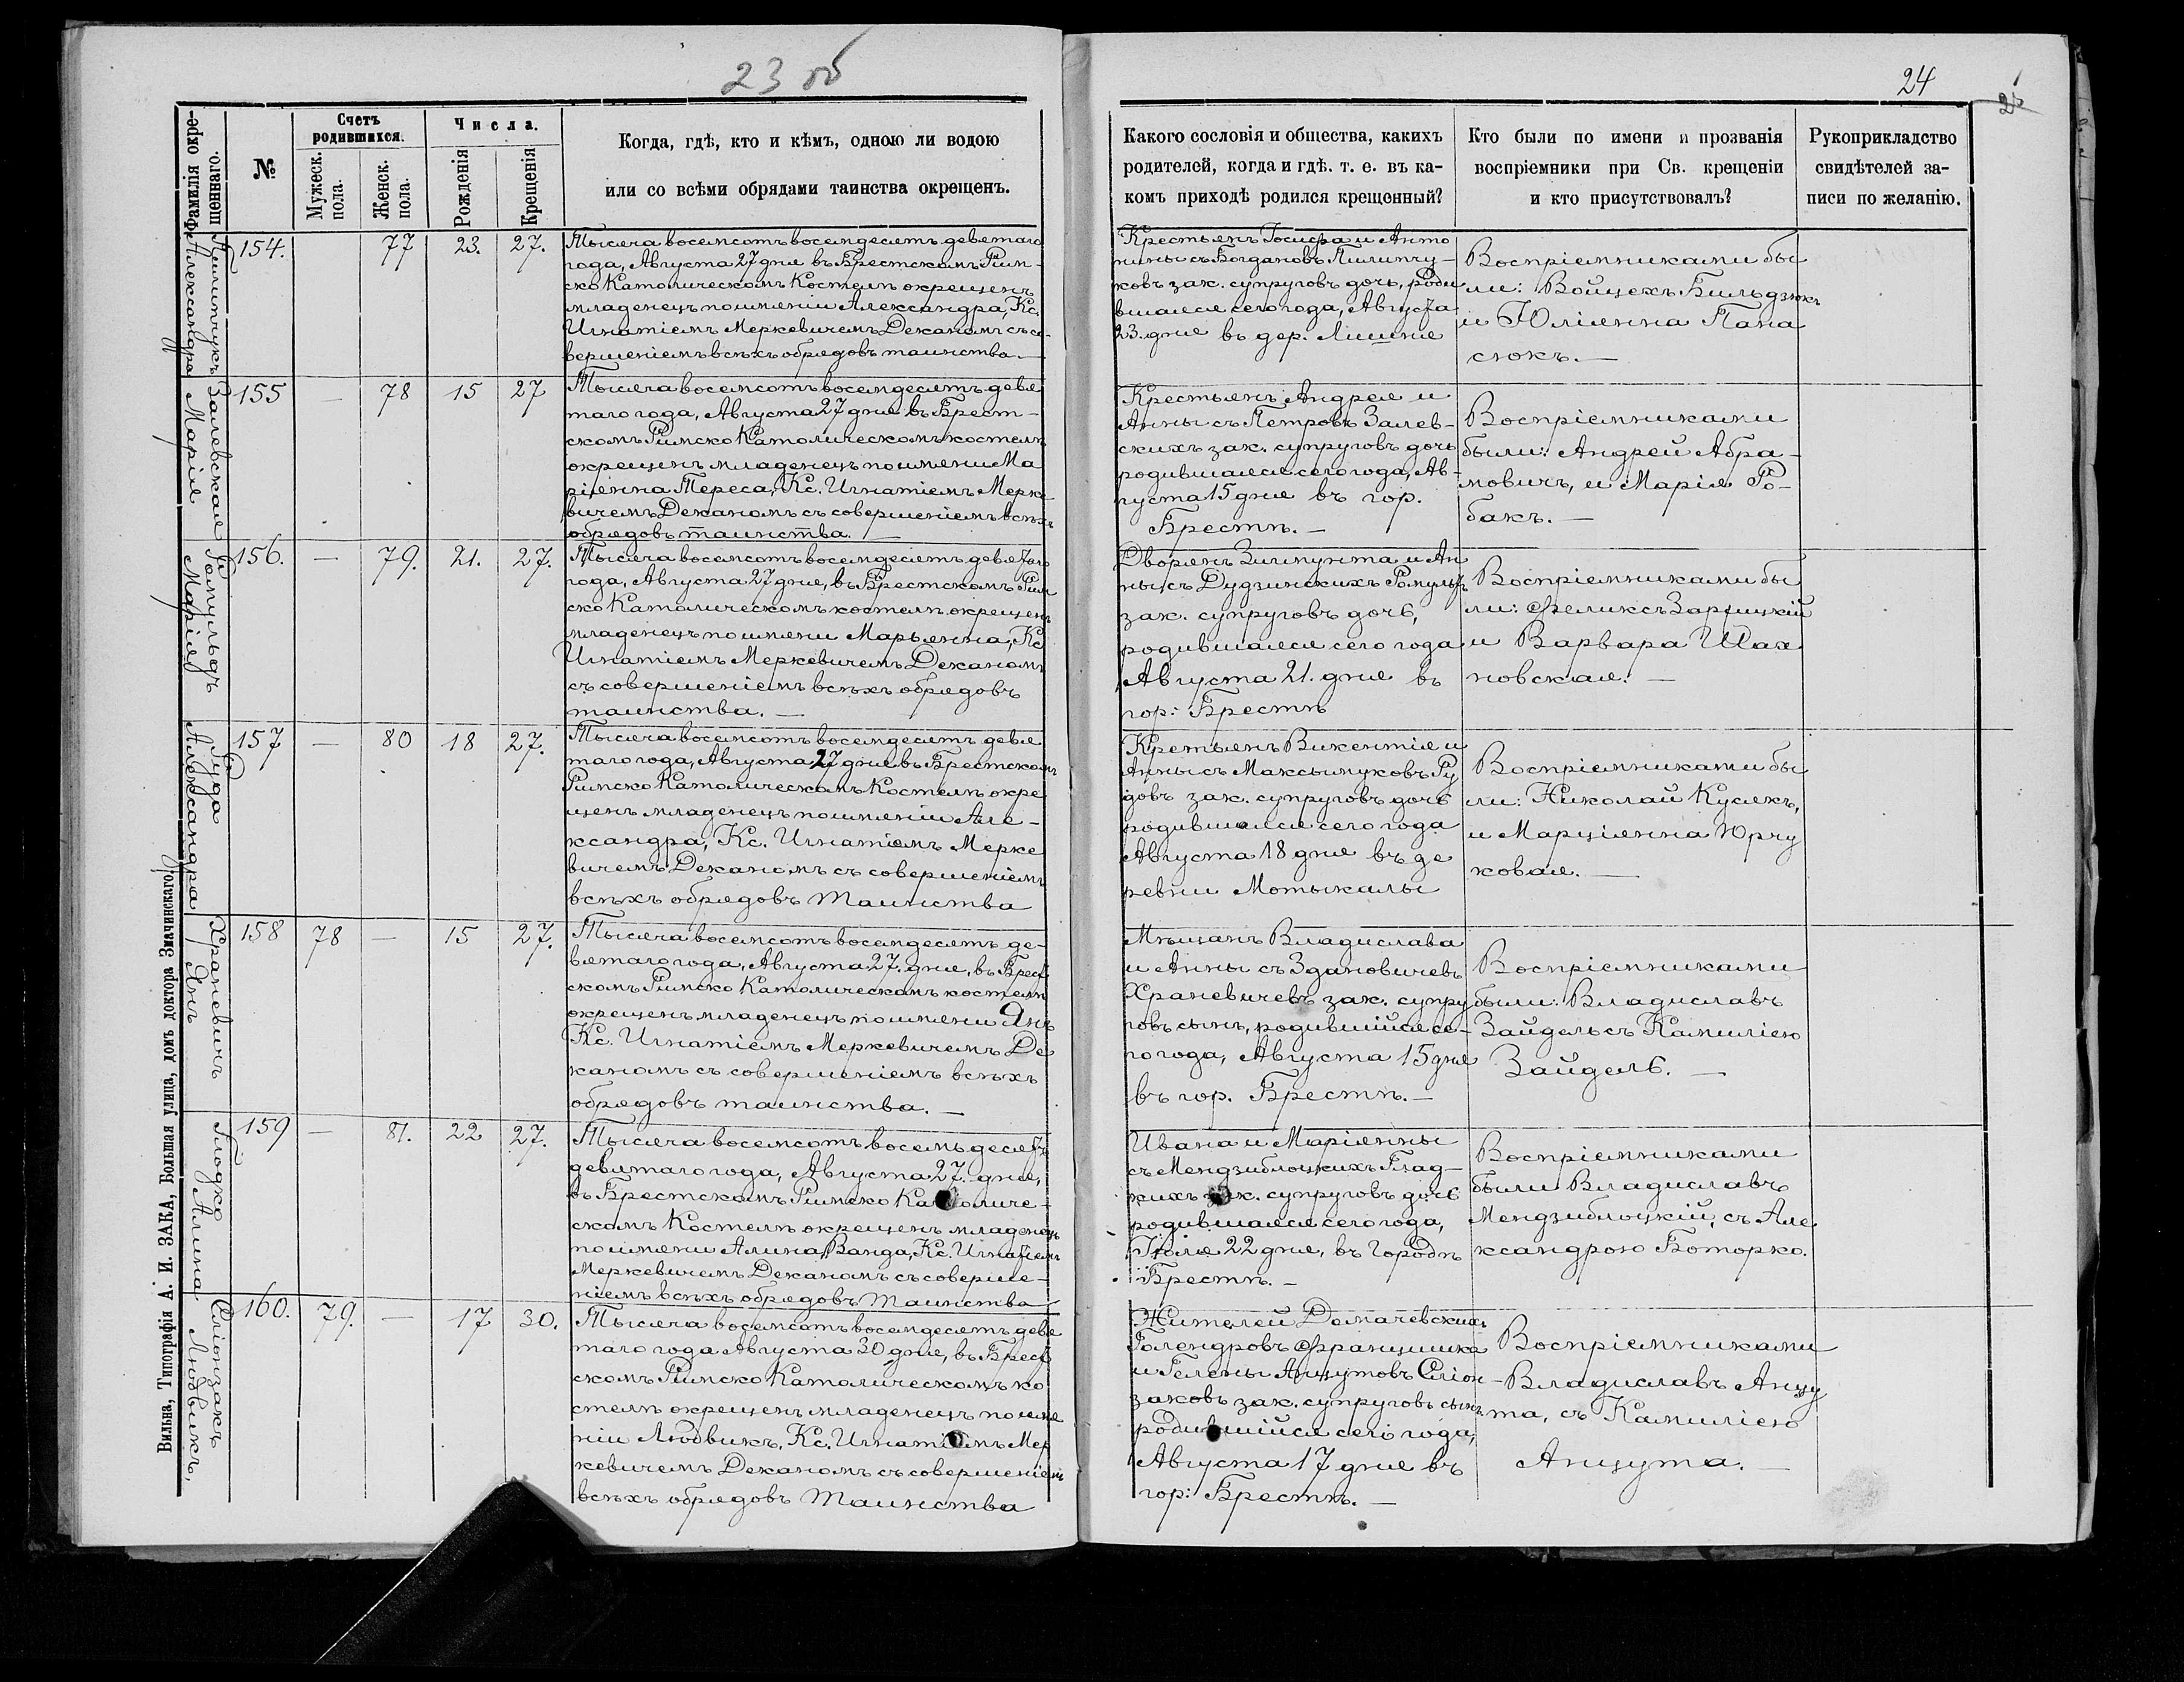 23 об
24
Фамилія окре-
щеннаго.
№
Счетъ
родившихся.
Мужеск.
пола.
Женск.
пола.
Числа.
Рожденія
Крещенія
Когда, гдѣ, кто и кѣмъ, одною ли водою
или со всѣми обрядами таинства окрещенъ.
Какого сословія и общества, какихъ
родителей, когда и гдѣ. т. е. въ ка-
комъ приходѣ родился крещенный?
Кто были по имени и прозванія
воспріемники при Св. крещеніи
и кто присутствовалъ?
Рукоприкладство
свидѣтелей за-
писи по желанію.
Пилипчукъ
Александра
154.
77
23.
27.
Тысяча восемсотъ восемдесятъ девятаго
года, Августа 27 дня въ Брестскомъ Рим-
ско Католическомъ Костелѣ окрещенъ
младенецъ по имени Александра, Кс.
Игнатіемъ Меркевичемъ Деканомъ съ со-
вершеніемъ всѣхъ обрядовъ таинства.—
Крестьянъ Іосифа и Анто
нины съ Богдановъ Пилипчу-
ковъ зак. супруговъ дочь, роди
вшаяся сего года, Августа
23. дня въ дер. Лишня
Воспріемниками бы
ли: Войцехъ Бильдзюкъ
и Юліянна Пана
сюкъ.—
Залевская
Марія
155
—
78
15
27
Тысяча восемсотъ восемдесятъ девя
таго года, Августа 27 дня въ Брест-
скомъ Римско Католическомъ костелѣ
окрещенъ младенецъ по имени Ма
ріянна Тереса, Кс. Игнатіемъ Мерке
вичемъ Деканомъ съ совершеніемъ всѣхъ
обрядовъ таинства.—
Крестьянъ Андрея и
Анны съ Петровъ Залев-
скихъ зак. супруговъ дочь
родившаяся сего года, Ав-
густа 15 дня въ гор.
Брестѣ.—
Воспріемниками
были: Андрей Абра-
мовичъ, и Марія Ро-
бакъ.—
Ромульдъ
Марія
156.
—
79.
21.
27.
Тысяча восемсотъ восемдесятъ девятаго
года, Августа 27 дня, въ Брестскомъ Рим
ско Католическомъ костелѣ окрещенъ
младенецъ по имени Марьянна, Кс
Игнатіемъ Меркевичемъ Деканомъ
съ совершеніемъ всѣхъ обрядовъ
таинства.—
Дворянъ Зигмунта и Ан
ны съ Дудзинскихъ Ромульдъ
зак. супруговъ дочь,
родившаяся сего года
Августа 21. дня въ
гор: Брестѣ
Воспріемниками бы
ли: Феликсъ Зарицкій
и Варвара Шах
новская.—
Руда
Александра
157
—
80
18
27.
Тысяча восемсотъ восемдесятъ девя
таго года, Августа 27 дня въ Брестскомъ
Римско Католическомъ Костелѣ окре
щенъ младенецъ по имени Але-
ксандра, Кс. Игнатіемъ Мерке
вичемъ Деканомъ съ совершеніемъ
всѣхъ обрядовъ Таинства
Кретьянъ Викентія и
Анны съ Максымуковъ Ру
довъ зак. супруговъ дочь
родившаяся сего года
Августа 18 дня въ де
ревни Мотыкалы
Воспріемниками бы
ли: Николай Кусякъ,
и Марціянна Юрчу
ковая.—
Храневичъ
Янъ
158
78
—
15
27.
Тысяча восемсотъ восемдесятъ де-
вятаго года, Августа 27. дня, въ Брест
скомъ Римско Католическомъ костелѣ
окрещенъ младенецъ по имени Янъ
Кс. Игнатіемъ Меркевичемъ Де
каномъ съ совершеніемъ всѣхъ
обрядовъ таинства.—
Мѣщанъ Владислава
и Анны съ Здановичевъ
Храневичевъ зак. супру
говъ сынъ, родившійся се-
го года, Августа 15 дня
въ гор. Брестѣ.—
Воспріемниками
были: Владиславъ
Зайдель съ Камиліею
Зайдель.—
Глодко
Алина
159
—
81.
22
27.
Тысяча восемсотъ восемьдесятъ
девятаго года, Августа 27. дня,
въ Брестскомъ Римско Католиче-
скомъ Костелѣ окрещенъ младенецъ
по имени Алина Ванда, Кс. Игнатіемъ
Меркевичемъ Деканомъ съ соверше-
ніемъ всѣхъ обрядовъ Таинства
Ивана и Маріянны
съ Мендзиблоцкихъ Глад-
кихъ зак. супруговъ дочь
родившаяся сего года,
Іюля 22 дня, въ Городѣ
Брестѣ.—
Воспріемниками
были Владиславъ
Мендзиблоцкій, съ Але
ксандрою Боторко.
Сліонзакъ
Людвикъ,
160.
79.
—
17
30.
Тысяча восемсотъ восемдесятъ девя
таго года Августа 30 дня, въ Брест
скомъ Римско Католическомъ ко
стелѣ окрещенъ младенецъ по име
ніи Людвикъ, Кс. Игнатіемъ Мер
кевичемъ Деканомъ съ совершеніемъ
всѣхъ обрядовъ Таинства
Жителей Домачевскихъ
Голендровъ Францишка
и Гелены Анцутовъ Сліон-
заковъ зак. супруговъ сынъ
родившійся сего года,
Августа 17 дня въ
гор: Брестѣ.—
Воспріемниками
Владиславъ Анцу
та, съ Камиліею
Анцута.—
Вильна, Типографія А. И. ЗАКА, Большая улица, домъ доктора Значинскаго.